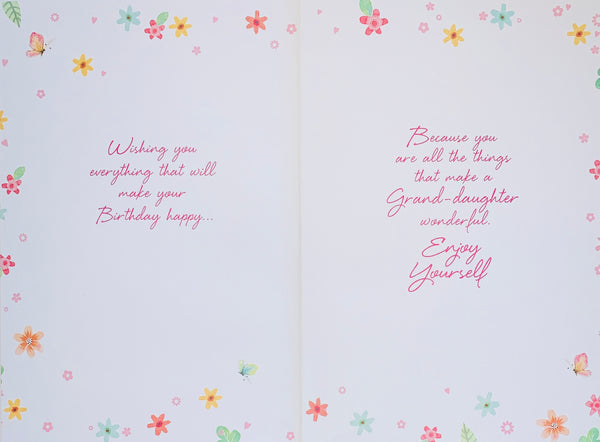 Wishing you
everything that will
make your
Birthday happy...
Because you
are all the things
that make a
Grand-daughter
wonderful.
Enjoy
Yourself